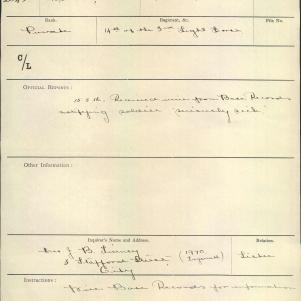 Rank.
Regiment, &c.
File No.
Private
14th of the 3rd Light Horse
C/L
OFFICIAL REPORTS:
Received wire from Base Records
notifying soldier "seriously sick"
Other Information:
Inquirer's Name and Address.
Relation.
Mrs J B
Stafford Street
City
(1770
Sister
Instructions:
Base Records for information